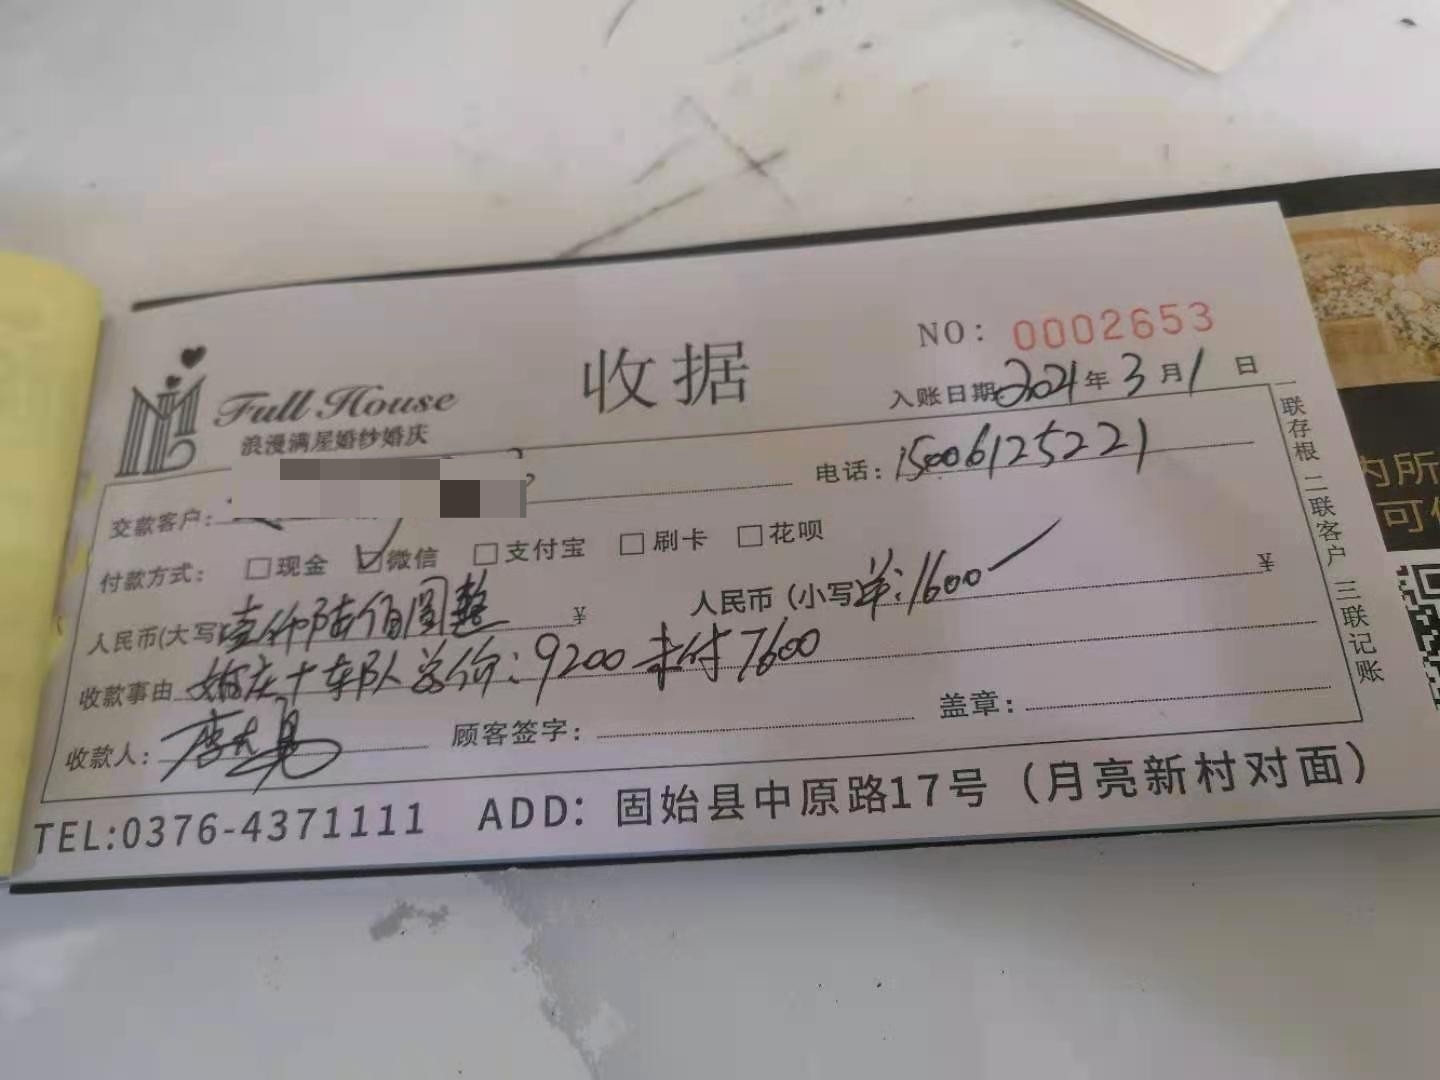 Full House
浪漫满屋婚纱婚庆
收据
NO: 0002653
入账日期: 2021年3月1日
交款客户:
电话: 15006125221
付款方式: □现金 ☑微信 □支付宝 □刷卡 □花呗
人民币(大写 壹仟陆佰圆整 ¥
人民币 (小写 ¥:1600 ¥
收款事由 婚庆+车队总价:9200 未付7600
收款人:
顾客签字:
盖章:
TEL:0376-4371111 ADD: 固始县中原路17号 (月亮新村对面)
一联存根 二联客户 三联记账
内所
可